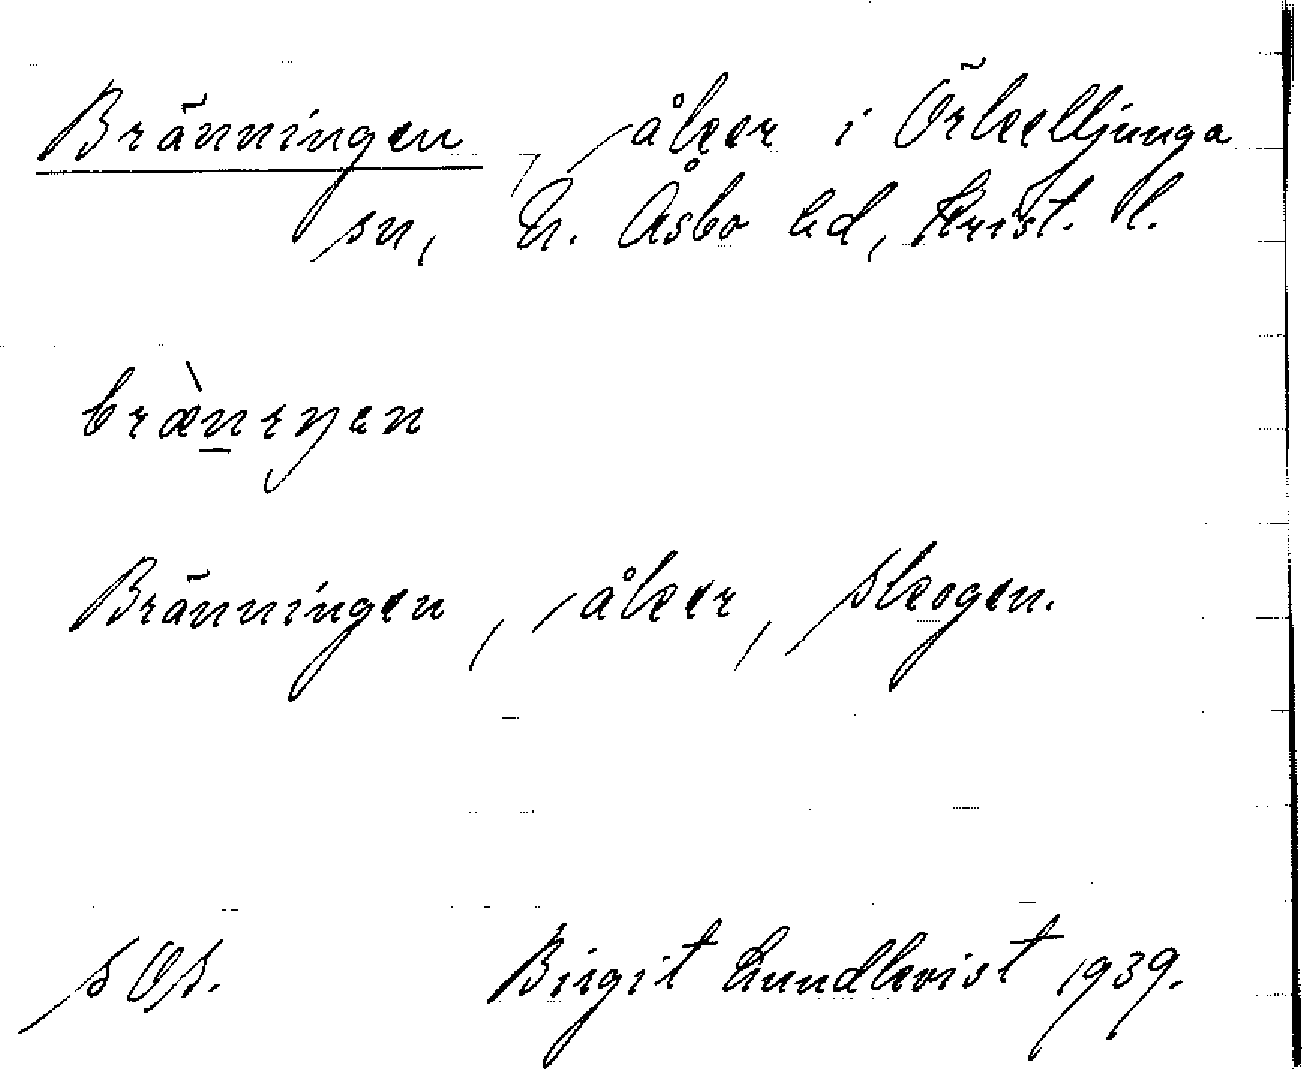 Bränningen, åker i Örkelljunga
sn, N. Åsbo hd, Krist. l.
bræ̀nıŋen
Bränningen, åker, skogen.
Birgit Lundkvist 1939.